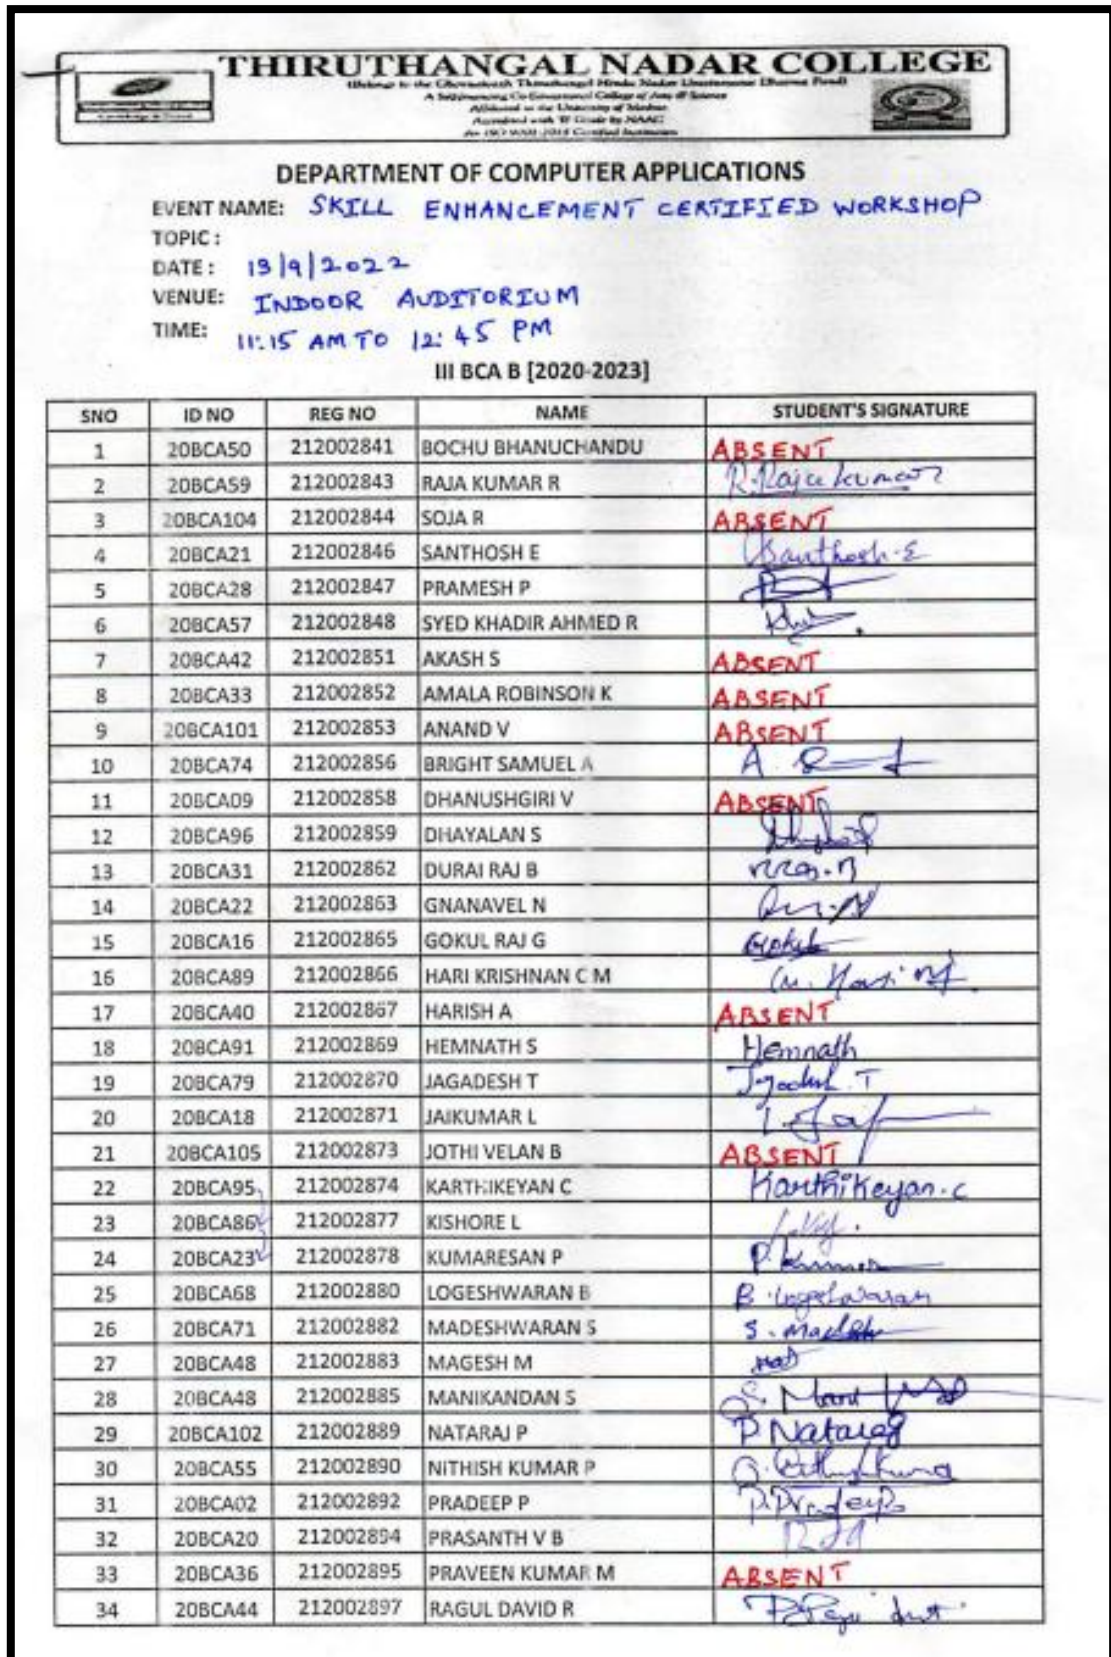 THIRUTHANGAL NADAR COLLEGE
(Belongs to the Chennaivazh Thiruthangal Hindu Nadar Uravinmurai Dharma Fund)
A Selffinancing Co-Educational College of Arts & Science
Affiliated to the University of Madras
Accredited with 'B' Grade by NAAC
An ISO 9001:2015 Certified Institution
DEPARTMENT OF COMPUTER APPLICATIONS
EVENT NAME: SKILL ENHANCEMENT CERTIFIED WORKSHOP
TOPIC :
DATE : 13|9|2022
VENUE: INDOOR AUDITORIUM
TIME: 11:15 AM TO 12:45 PM
III BCA B [2020-2023]
SNO ID NO REG NO NAME STUDENT'S SIGNATURE
1 20BCA50 212002841 BOCHU BHANUCHANDU ABSENT
2 20BCA59 212002843 RAJA KUMAR R R.Rajakumar
3 20BCA104 212002844 SOJA R ABSENT
4 20BCA21 212002846 SANTHOSH E Santhosh-E
5 20BCA28 212002847 PRAMESH P
6 20BCA57 212002848 SYED KHADIR AHMED R
7 20BCA42 212002851 AKASH S ABSENT
8 20BCA33 212002852 AMALA ROBINSON K ABSENT
9 20BCA101 212002853 ANAND V ABSENT
10 20BCA74 212002856 BRIGHT SAMUEL A A.
11 20BCA09 212002858 DHANUSHGIRI V ABSENT
12 20BCA96 212002859 DHAYALAN S
13 20BCA31 212002862 DURAI RAJ B
14 20BCA22 212002863 GNANAVEL N
15 20BCA16 212002865 GOKUL RAJ G Gokul
16 20BCA89 212002866 HARI KRISHNAN C M
17 20BCA40 212002867 HARISH A ABSENT
18 20BCA91 212002869 HEMNATH S Hemnath
19 20BCA79 212002870 JAGADESH T Jagadesh . T
20 20BCA18 212002871 JAIKUMAR L
21 20BCA105 212002873 JOTHI VELAN B ABSENT
22 20BCA95 212002874 KARTHIKEYAN C Karthikeyan.c
23 20BCA86 212002877 KISHORE L
24 20BCA23 212002878 KUMARESAN P P. Kumar
25 20BCA68 212002880 LOGESHWARAN B B. Logeshwaran
26 20BCA71 212002882 MADESHWARAN S S. Madesh
27 20BCA48 212002883 MAGESH M
28 20BCA48 212002885 MANIKANDAN S
29 20BCA102 212002889 NATARAJ P P Nataraj
30 20BCA55 212002890 NITHISH KUMAR P
31 20BCA02 212002892 PRADEEP P P.Pradeep
32 20BCA20 212002894 PRASANTH V B
33 20BCA36 212002895 PRAVEEN KUMAR M ABSENT
34 20BCA44 212002897 RAGUL DAVID R